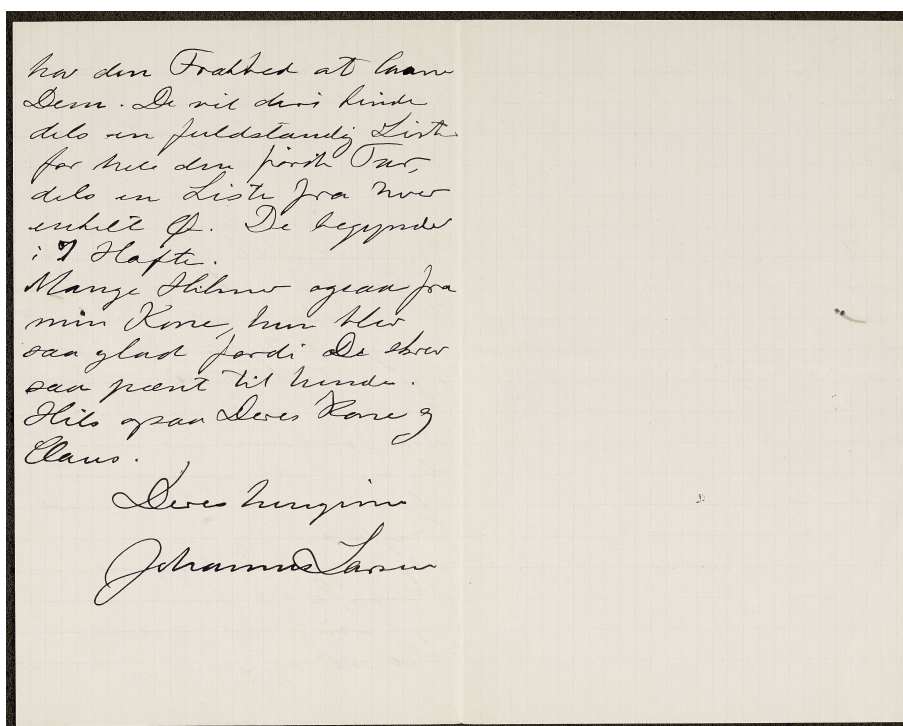 har den Frækhed at laane
Dem. De vil deri finde
dels en fuldstændig Liste
for hele den første Tur,
dels en Liste fra hver
enkelt Ø. De begynder
i 7 Hæfte.
Mange Hilsner ogsaa fra
min Kone, hun blev
saa glad fordi De skrev
saa pænt til hende.
Hils ogsaa Deres Kone og
Claus.
Deres hengivne
Johannes Larsen